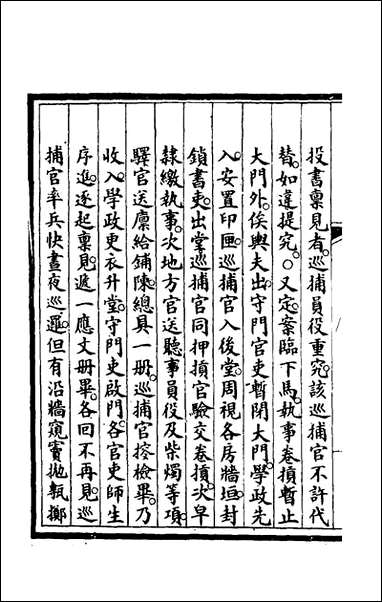 投書稟見者巡捕員役重究該巡捕官不許代
替如違提究○又定案臨下馬執事卷損暫止
大門外俟輿夫出守門官吏暫閉大門學政先
入安置印匣巡捕官入後堂周視各房牆垣封
鎖書吏出堂巡捕官同押損官驗交卷損次早
隸繳執事次地方官送聽事員役及柴燭等項
驛官送廪給鋪陳總具一冊巡捕官搭檢畢乃
收入學政吏衣升堂守門吏啟門各官吏師生
序進逐起稟見遞一應文册畢各回不再見巡
捕官率兵快晝夜巡邏但有沿牆窺竇拋甎擲